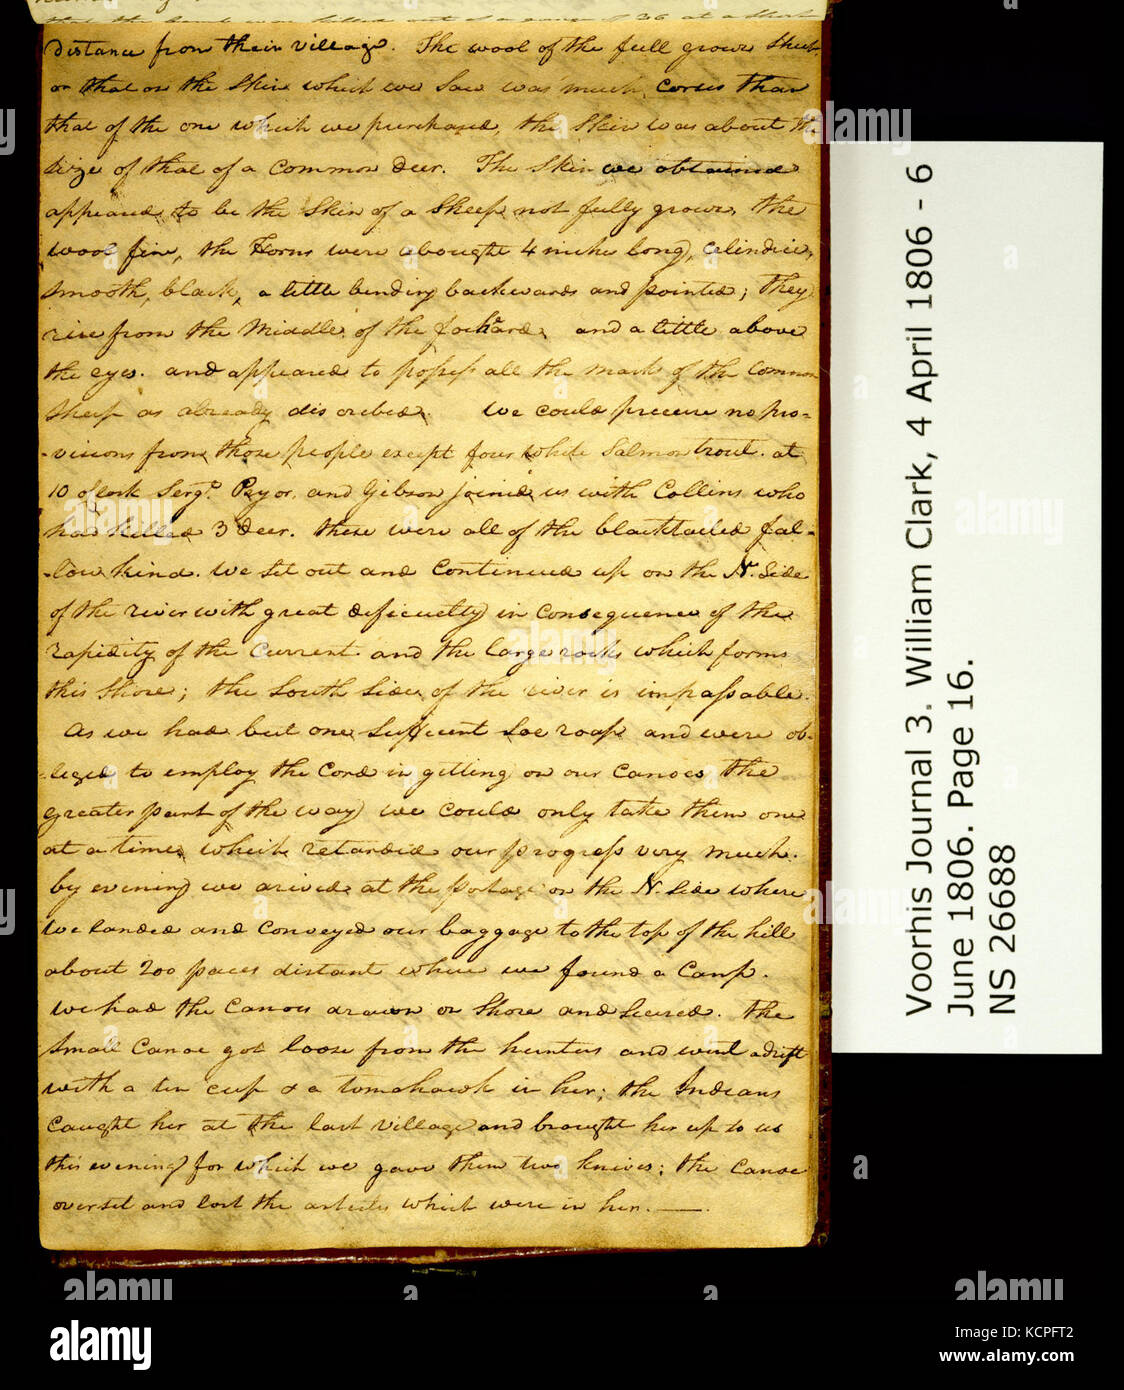 distance from their village. The wool of the full grown Sheep
or that on the Skin which we Saw was much corser than
that of the one which we purchased, the Skin was about the
Size of that of a common deer. The Skin we obtained
appeared to be the Skin of a Sheep not fully grown, the
wool fine, the Horns were abought 4 inches long, celindric,
Smooth, black, a little bending backwards and pointed; They
rise from the Middle of the forehard, and a little above
the eyes. and appeared to possess all the marks of the Common
Sheep as already discribed. We could precure no pro-
-visions from those people except four white Salmon trout. at
10 oClock Sergt. Pryor and Gibson joined us with Collins who
had killed 3 deer. these were all of the blacktailed fal-
-low kind. We Set out and continued up on the N. Side
of the river with great dificuelty in Consequence of the
rapidity of the current and the large rocks which forms
this Shore; the South Side of the river is impassable.
As we had but one Sufficent Toe roap and were ob-
-leged to employ the Cord in getting on our canoes the
greater part of the way we could only take them one
at a time which retarded our progress very much.
by evening we arived at the portage on the N. Side where
we landed and Conveyed our baggage to the top of the hill
about 200 paces distant where we found a Camp.
we had the Canoes drawn on Shore and Secured. the
Small Canoe got loose from the hunters and went adrift
with a tin cup & a tomahawk in her; the Indians
Caught her at the last Village and brought her up to us
this evening for which we gave them two knives; the Canoe
overset and lost the articles which were in her.
Voorhis Journal 3. William Clark, 4 April 1806 - 6
June 1806. Page 16.
NS 26688
alamy
Image ID: KCPFT2
www.alamy.com